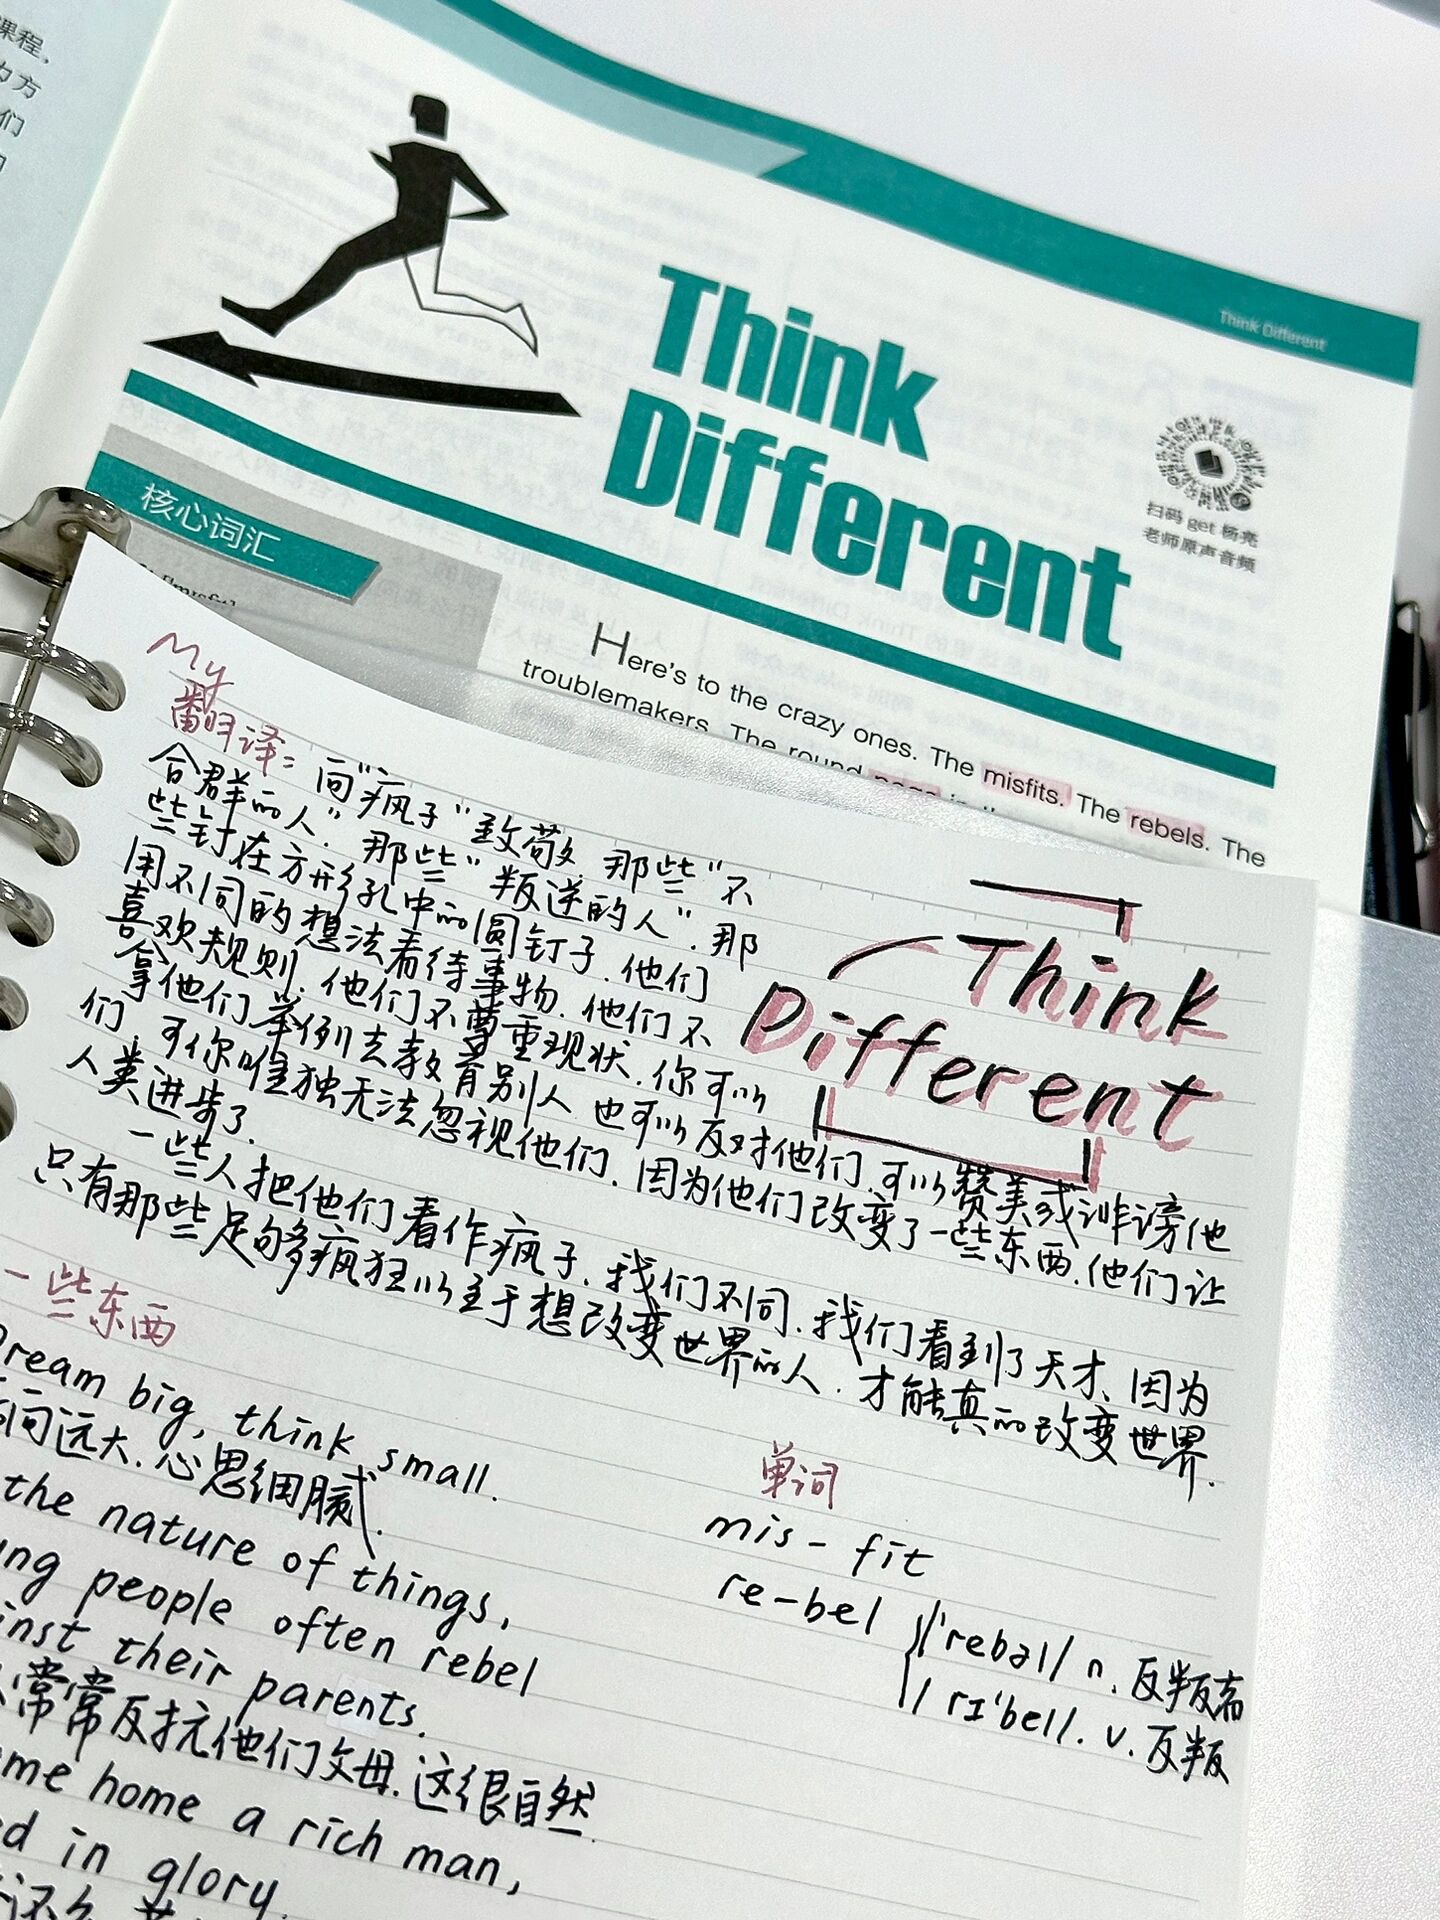 课程，
力方
们
Think Different
Think
Different
扫码 get 杨亮
老师原声音频
核心词汇
Here's to the crazy ones. The misfits. The rebels. The
troublemakers. The round
My
翻译：向"疯子"致敬.那些"不
合群的人".那些"叛逆的人".那
些钉在方形孔中的圆钉子.他们
用不同的想法看待事物.他们不
喜欢规则.他们不尊重现状.你可以
拿他们举例去教育别人.也可以反对他们.可以赞美或诽谤他
们.可你唯独无法忽视他们.因为他们改变了一些东西.他们让
人类进步了.
一些人把他们看作疯子.我们不同.我们看到了天才、因为
只有那些足够疯狂以至于想改变世界的人.才能真的改变世界.
Think
Different
一些东西
Dream big, think small.
向远大.心思细腻.
the nature of things,
ung people often rebel
inst their parents.
常常反抗他们父母.这很自然.
me home a rich man,
d in glory.
单词
mis-fit
re-bel
/'rebəl/ n.反叛者
/rɪ'bel/. v.反叛